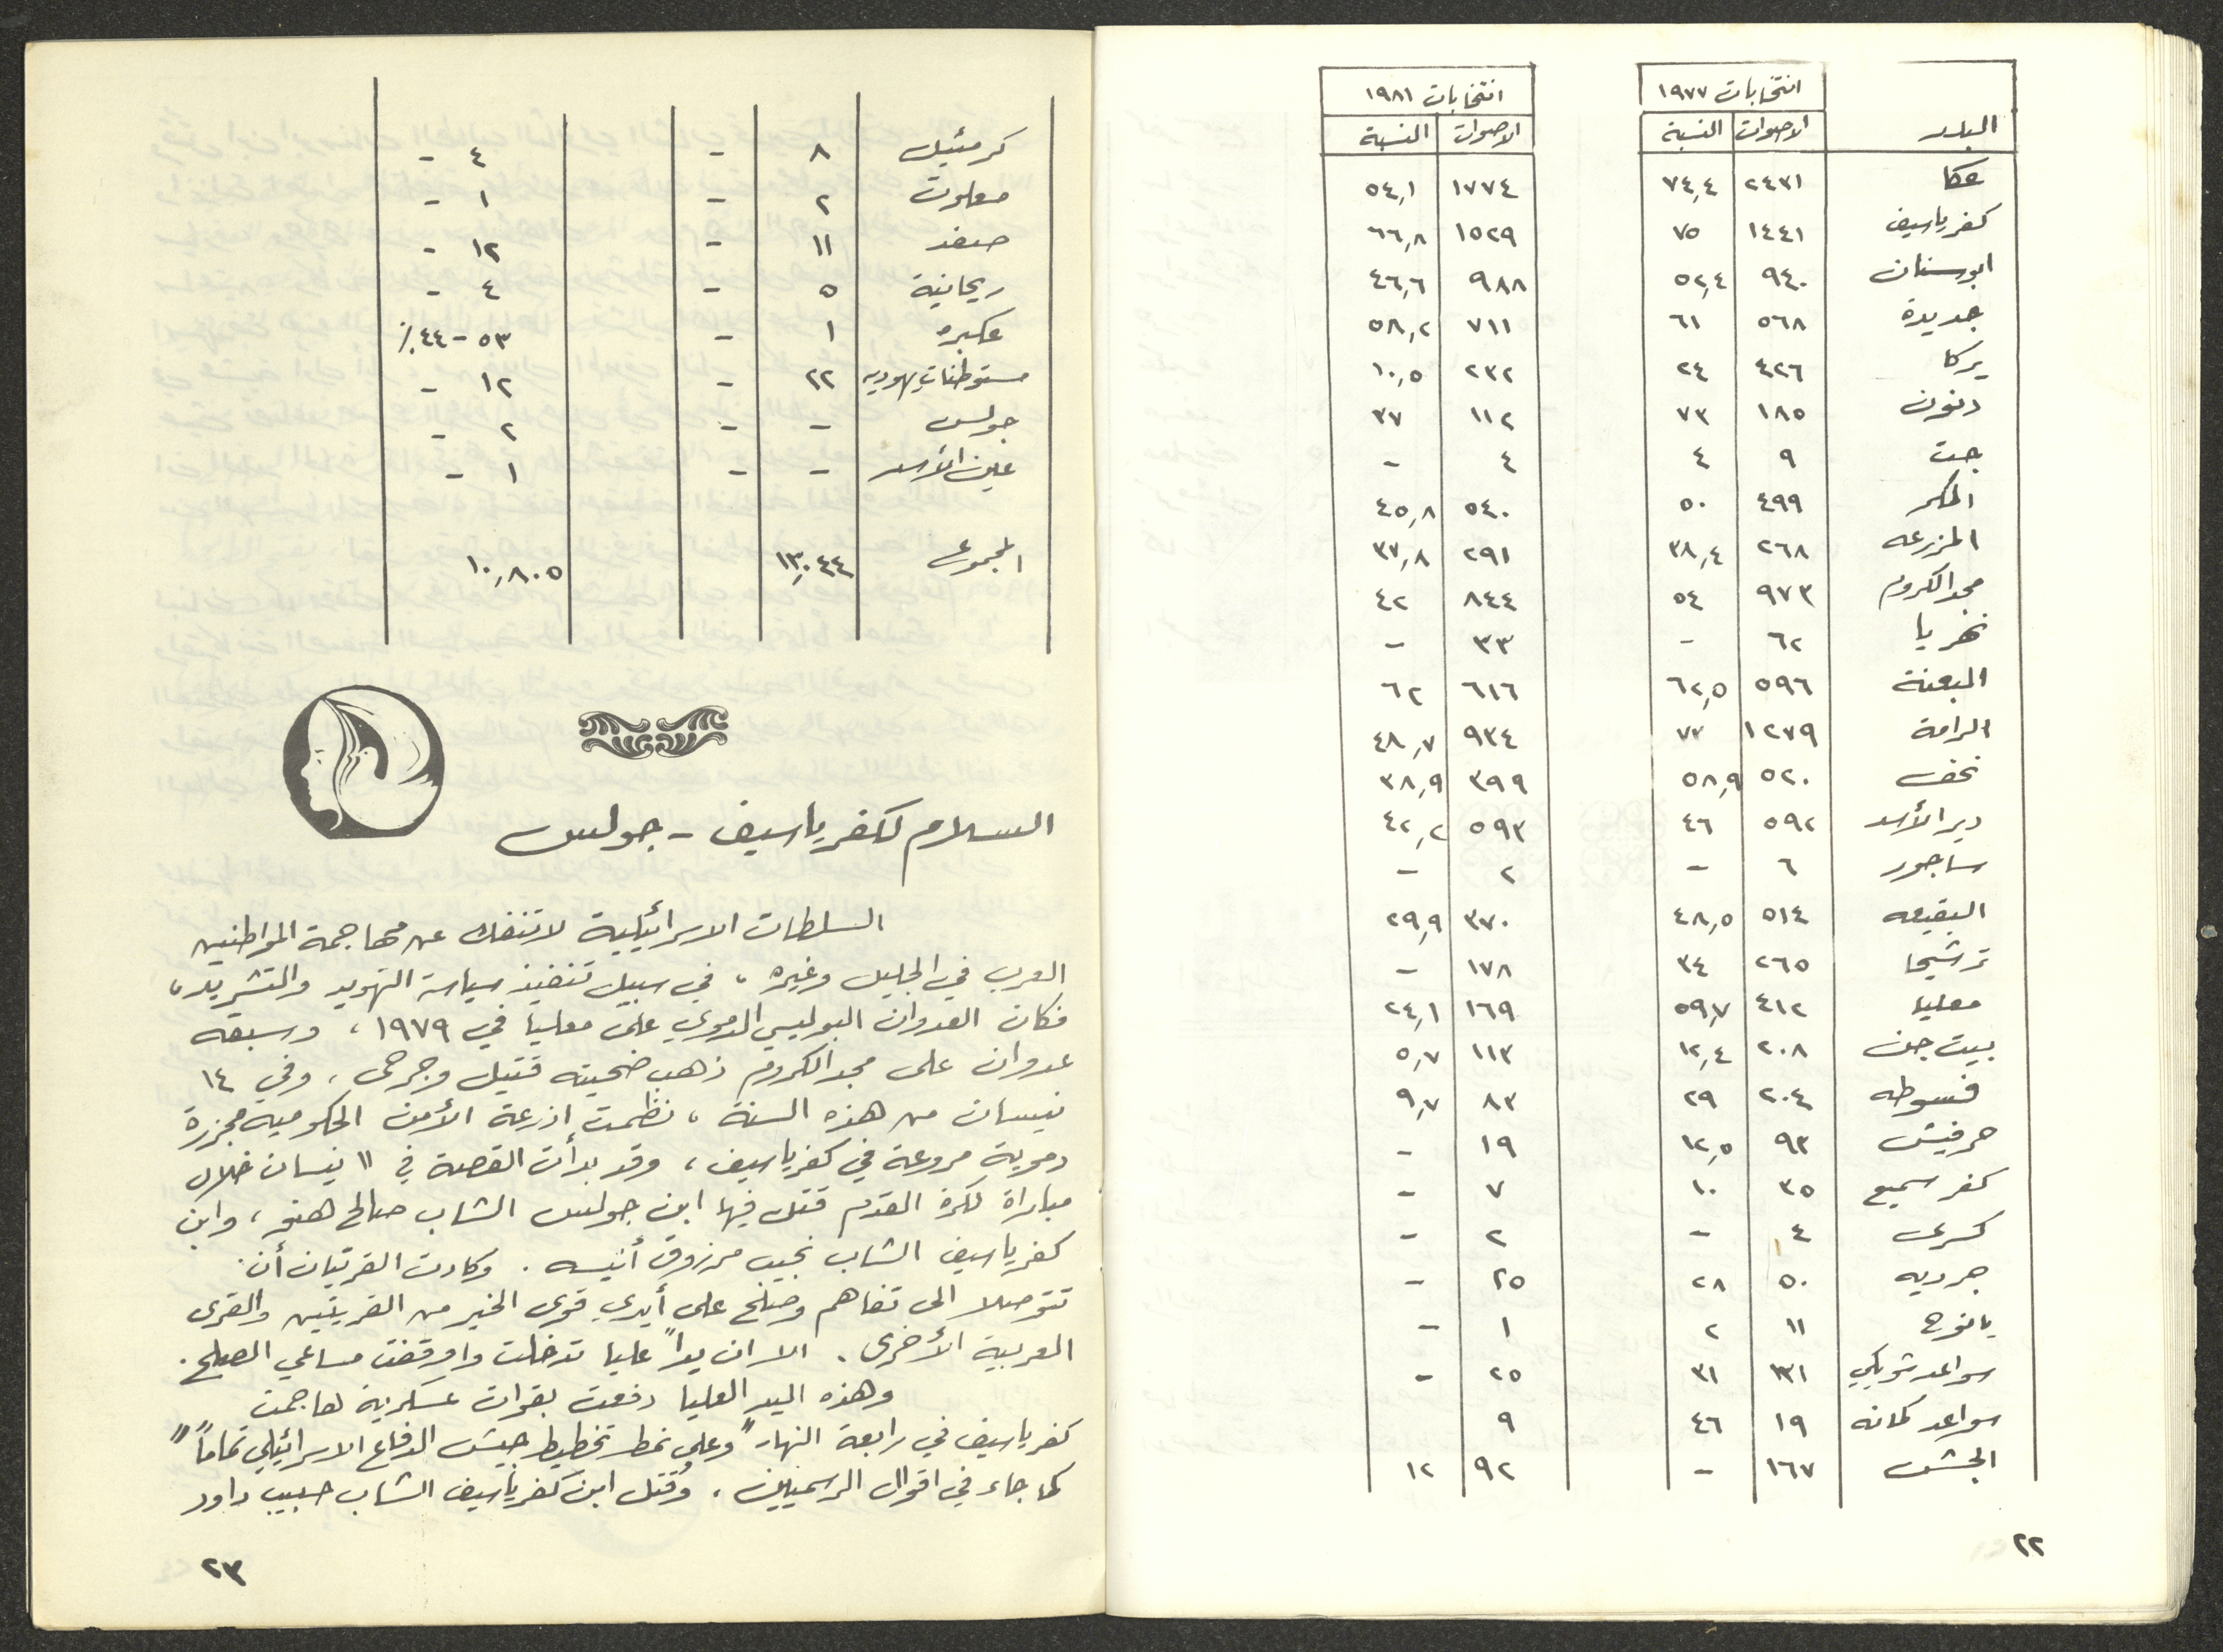 انتخابات ١٩٧٧ انتخابات ١٩٨١
البلد الاصوات النسبة الاصوات النسبة
عكا ٢٤٣١ ٧٤,٤ ١٧٧٤ ٥٤,١
كفرياسيف ١٤٤١ ٧٥ ١٥٢٩ ٦٦,٨
ابوسنان ٩٤٠ ٥٢,٤ ٩٨٨ ٤٦,٦
جديدة ٥٦٨ ٦١ ٧١١ ٥٨,٢
يركا ٤٢٦ ٢٤ ٢٣٢ ١٠,٥
دنون ١٨٥ ٧٣ ١١٢ ٣٧
جت ٩ ٤ ٤ -
المكر ٤٩٩ ٥٠ ٥٤٠ ٤٥,٨
المزرعه ٢٦٨ ٣٨,٤ ٢٩١ ٣٧,٨
مجد الكروم ٩٧٣ ٥٤ ٨٤٤ ٤٢
نهريا ٦٢ - ٣٣ -
البعنة ٥٩٦ ٦٢,٥ ٦١٦ ٦٢
الرامة ١٢٧٩ ٧٣ ٩٣٤ ٤٨,٧
نحف ٥٢٠ ٥٨,٩ ٣٩٩ ٣٨,٩
دير الأسد ٥٩٢ ٤٦ ٥٩٣ ٤٢,٢
ساجور ٦ - ٢ -
البقيعه ٥١٤ ٤٨,٥ ٣٧٠ ٢٩,٩
ترشيحا ٢٦٥ ٣٤ ١٧٨ -
معليا ٤١٢ ٥٩,٧ ١٦٩ ٢٤,١
بيت جن ٢٠٨ ١٢,٤ ١١٣ ٥,٧
فسوطه ٢٠٤ ٢٩ ٨٣ ٩,٧
حرفيش ٩٣ ١٢,٥ ١٩ -
كفر سميع ٣٥ ١٠ ٧ -
كسرى ٤ - ٢ -
جرديه ٥٠ ٢٨ ٢٥ -
يانوح ١١ ٢ ١ -
سواعد شويكي ١٣١ ٣١ ٢٥ -
سواعد كمانه ١٩ ٤٦ ٩
الجش ١٦٧ - ٩٢ ١٢
٢٢
كرمئيل ٨ - ٤ -
معلوت ٢ - ١ -
صفد ١١ - ١٢ -
ريحانية ٥ - ٤ -
عكبره ١ - ٥٣ - ٤٤٪
مستوطنات يهوديه ٢٢ - ١٢ -
جولس - - ٢ -
عين الأسد - - ١ -
المجموع ١٣,٠٤٤ ١٠,٨٠٥
السلام لكفرياسيف - جولس
السلطات الاسرائيلية لا تنفك عن مهاجمة المواطنين
العرب في الجليل وغيره، في سبيل تنفيذ سياسة التهويد والتشريد،
فكان العدوان البوليسي الدموي على معليا في ١٩٧٩، وسبقه
عدوان على مجد الكروم ذهب ضحيته قتيل وجرحى، وفي ١٤
نيسان من هذه السنة، نظمت اذرعة الأمن الحكومية مجزرة
دموية مروعة في كفرياسيف، وقد بدأت القصة في ١١ نيسان خلال
مباراة لكرة القدم قتل فيها ابن جولس الشاب صالح هنو، وابن
كفرياسيف الشاب نجيب مرزوق أنيسه. وكادت القريتان أن
تتوصلا الى تفاهم وصلح على أيدي قوى الخير من القريتين والقرى
العربية الأخرى. الا ان يداً عليا تدخلت واوقفت مساعي الصلح.
وهذه اليد العليا دفعت بقوات عسكرية هاجمت
كفرياسيف في رابعة النهار "وعلى نمط تخطيط جيش الدفاع الاسرائيلي تماماً"
كما جاء في اقوال الرسميين. وقُتل ابن كفرياسيف الشاب حبيب داود
٢٣